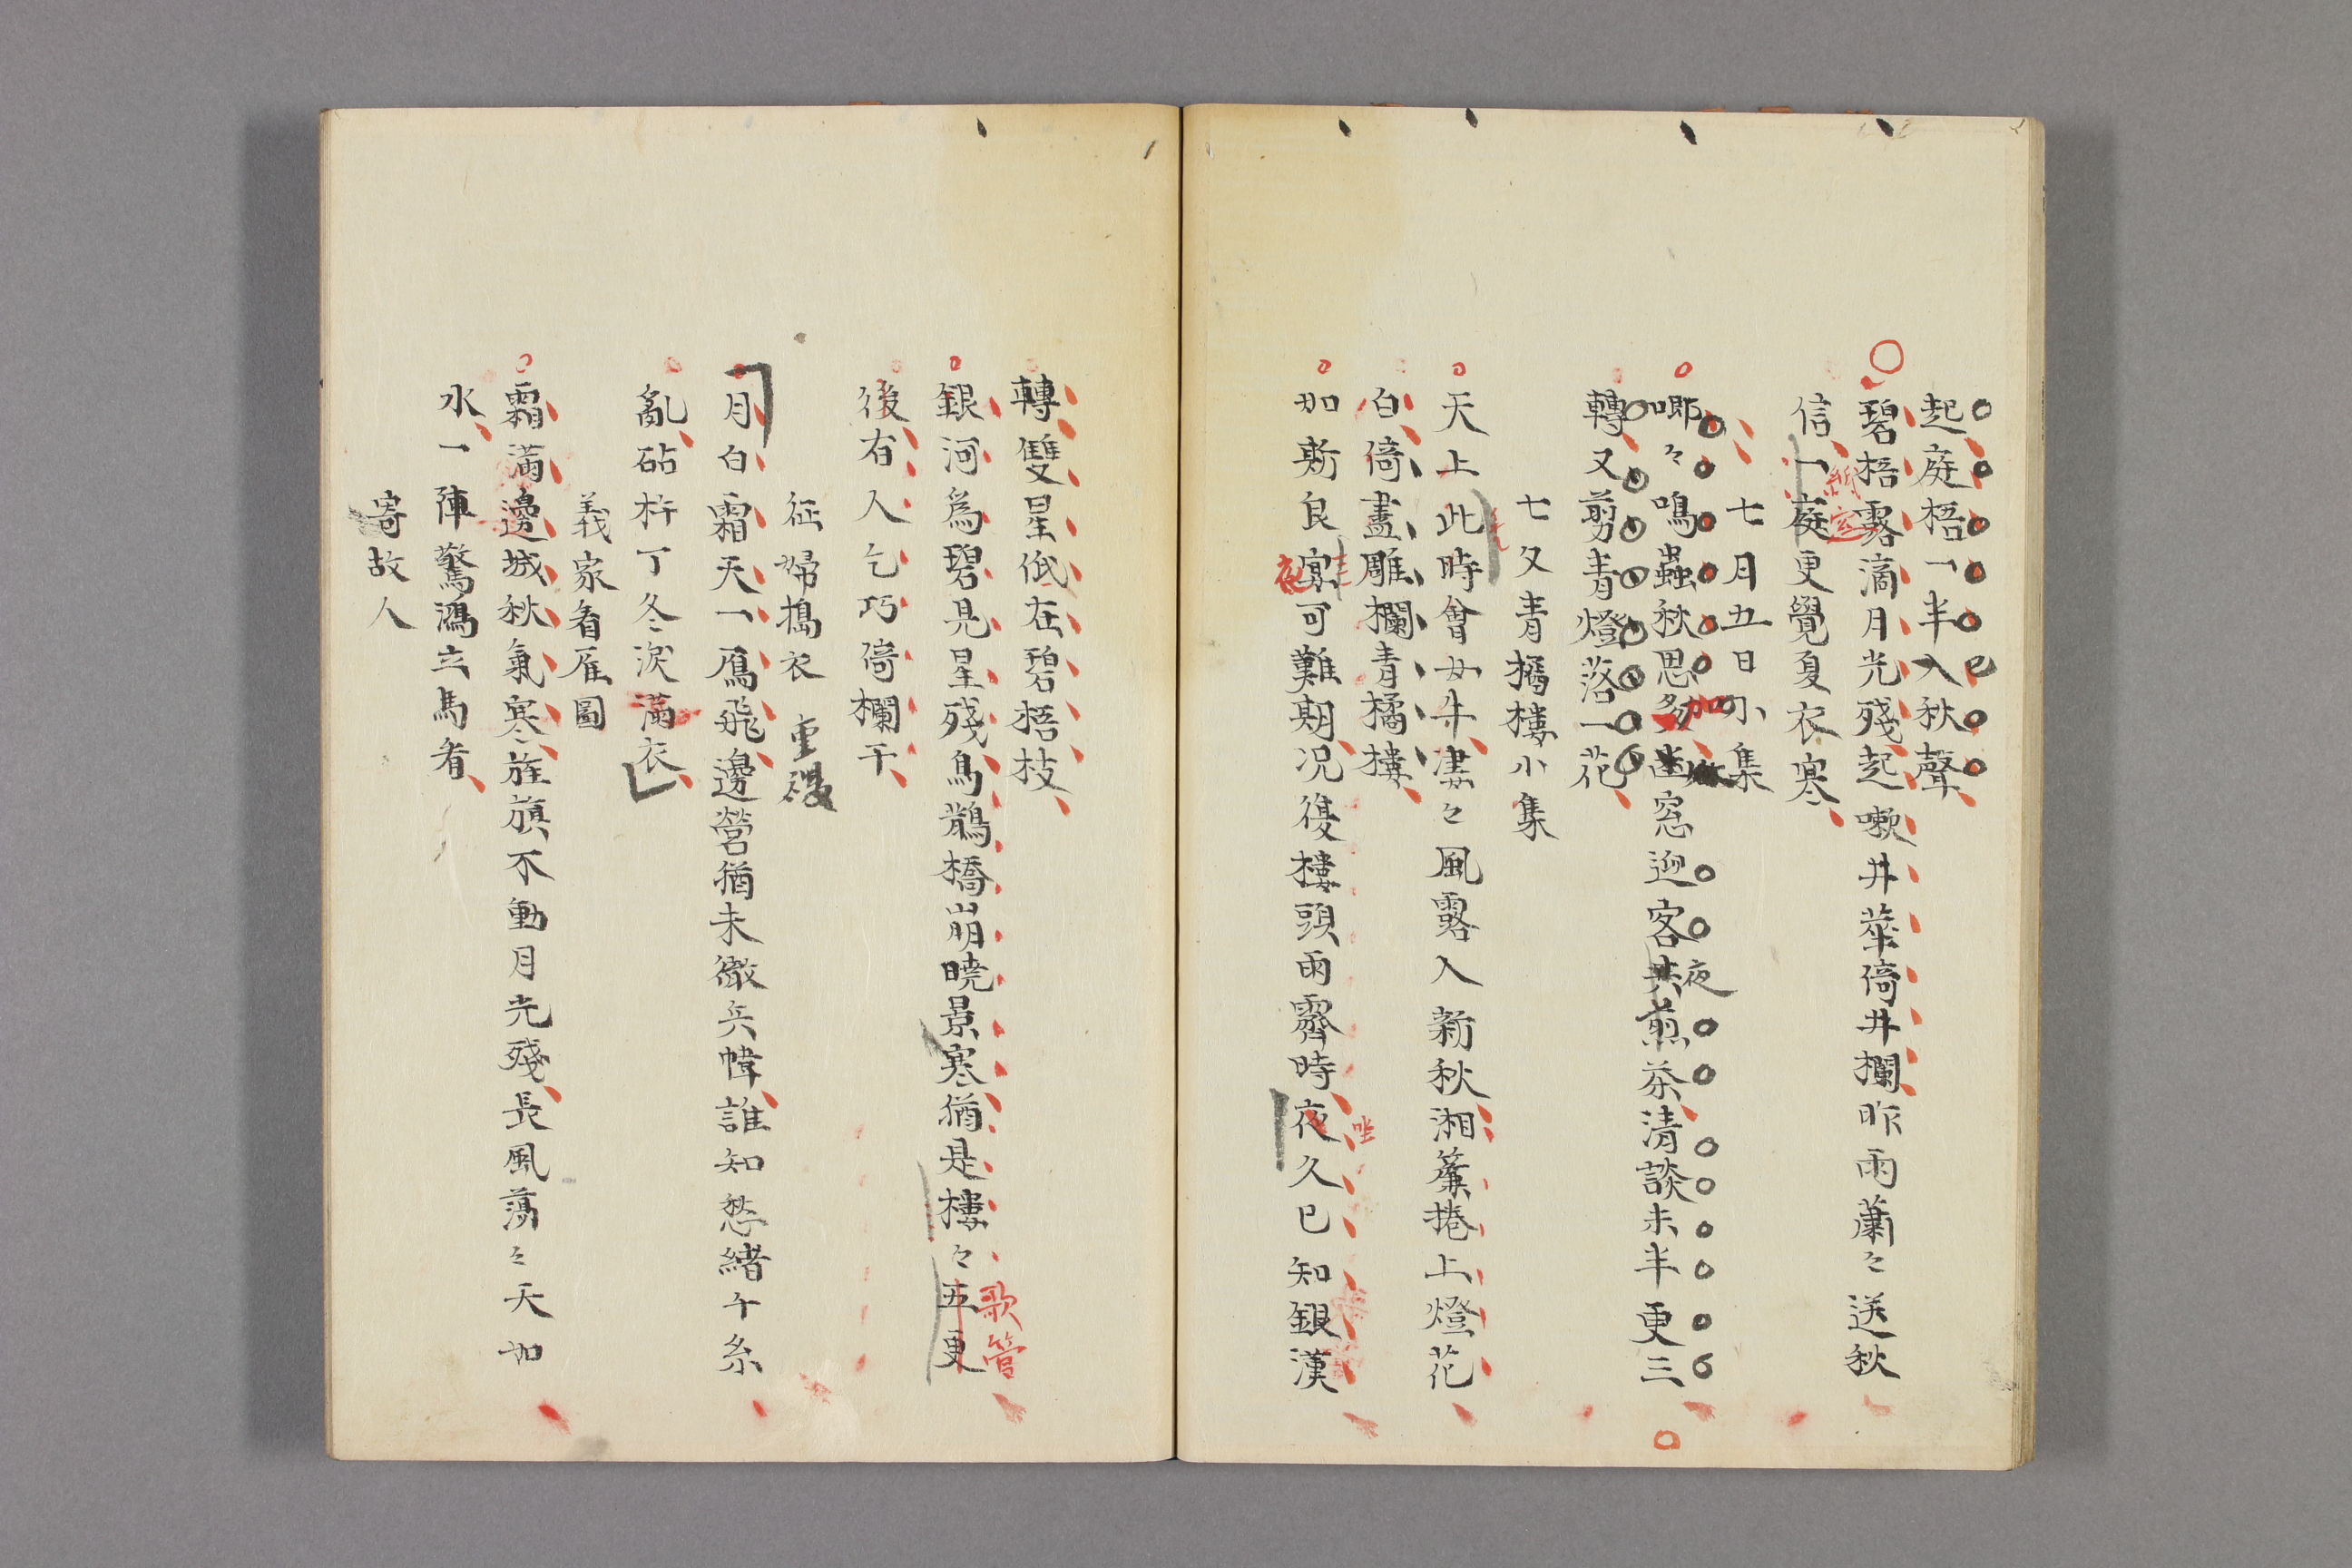 起庭梧一半入秋聲
碧梧露滴月光殘起嗽井華倚井欄昨雨蕭々送秋
信一庭更覺夏衣寒
紙窓
七月五日小集
喞々鳴蟲秋思多幽窓迎客共煎茶清談未半更三
加
夜
轉又剪青燈落一花
七夕青橘樓小集
天上此時會女牛凄々風露入新秋湘簾捲上燈花
白倚盡雕欄青橘樓
如斯良宴可難期况復樓頭雨霽時夜久已知銀漢
夜
坐
轉雙星低在碧梧枝
銀河爲碧見星殘烏鵲橋崩曉景寒猶是樓々五更
歌管
後有人乞巧倚欄干
征婦搗衣 重複
月白霜天一鴈飛邊營猶未徹兵幃誰知愁緒千糸
亂砧杵丁冬淚滿衣
義家看雁圖
霜滿邊城秋氣寒旌旗不動月光殘長風蕩々天如
水一陣驚鴻立馬看
寄故人